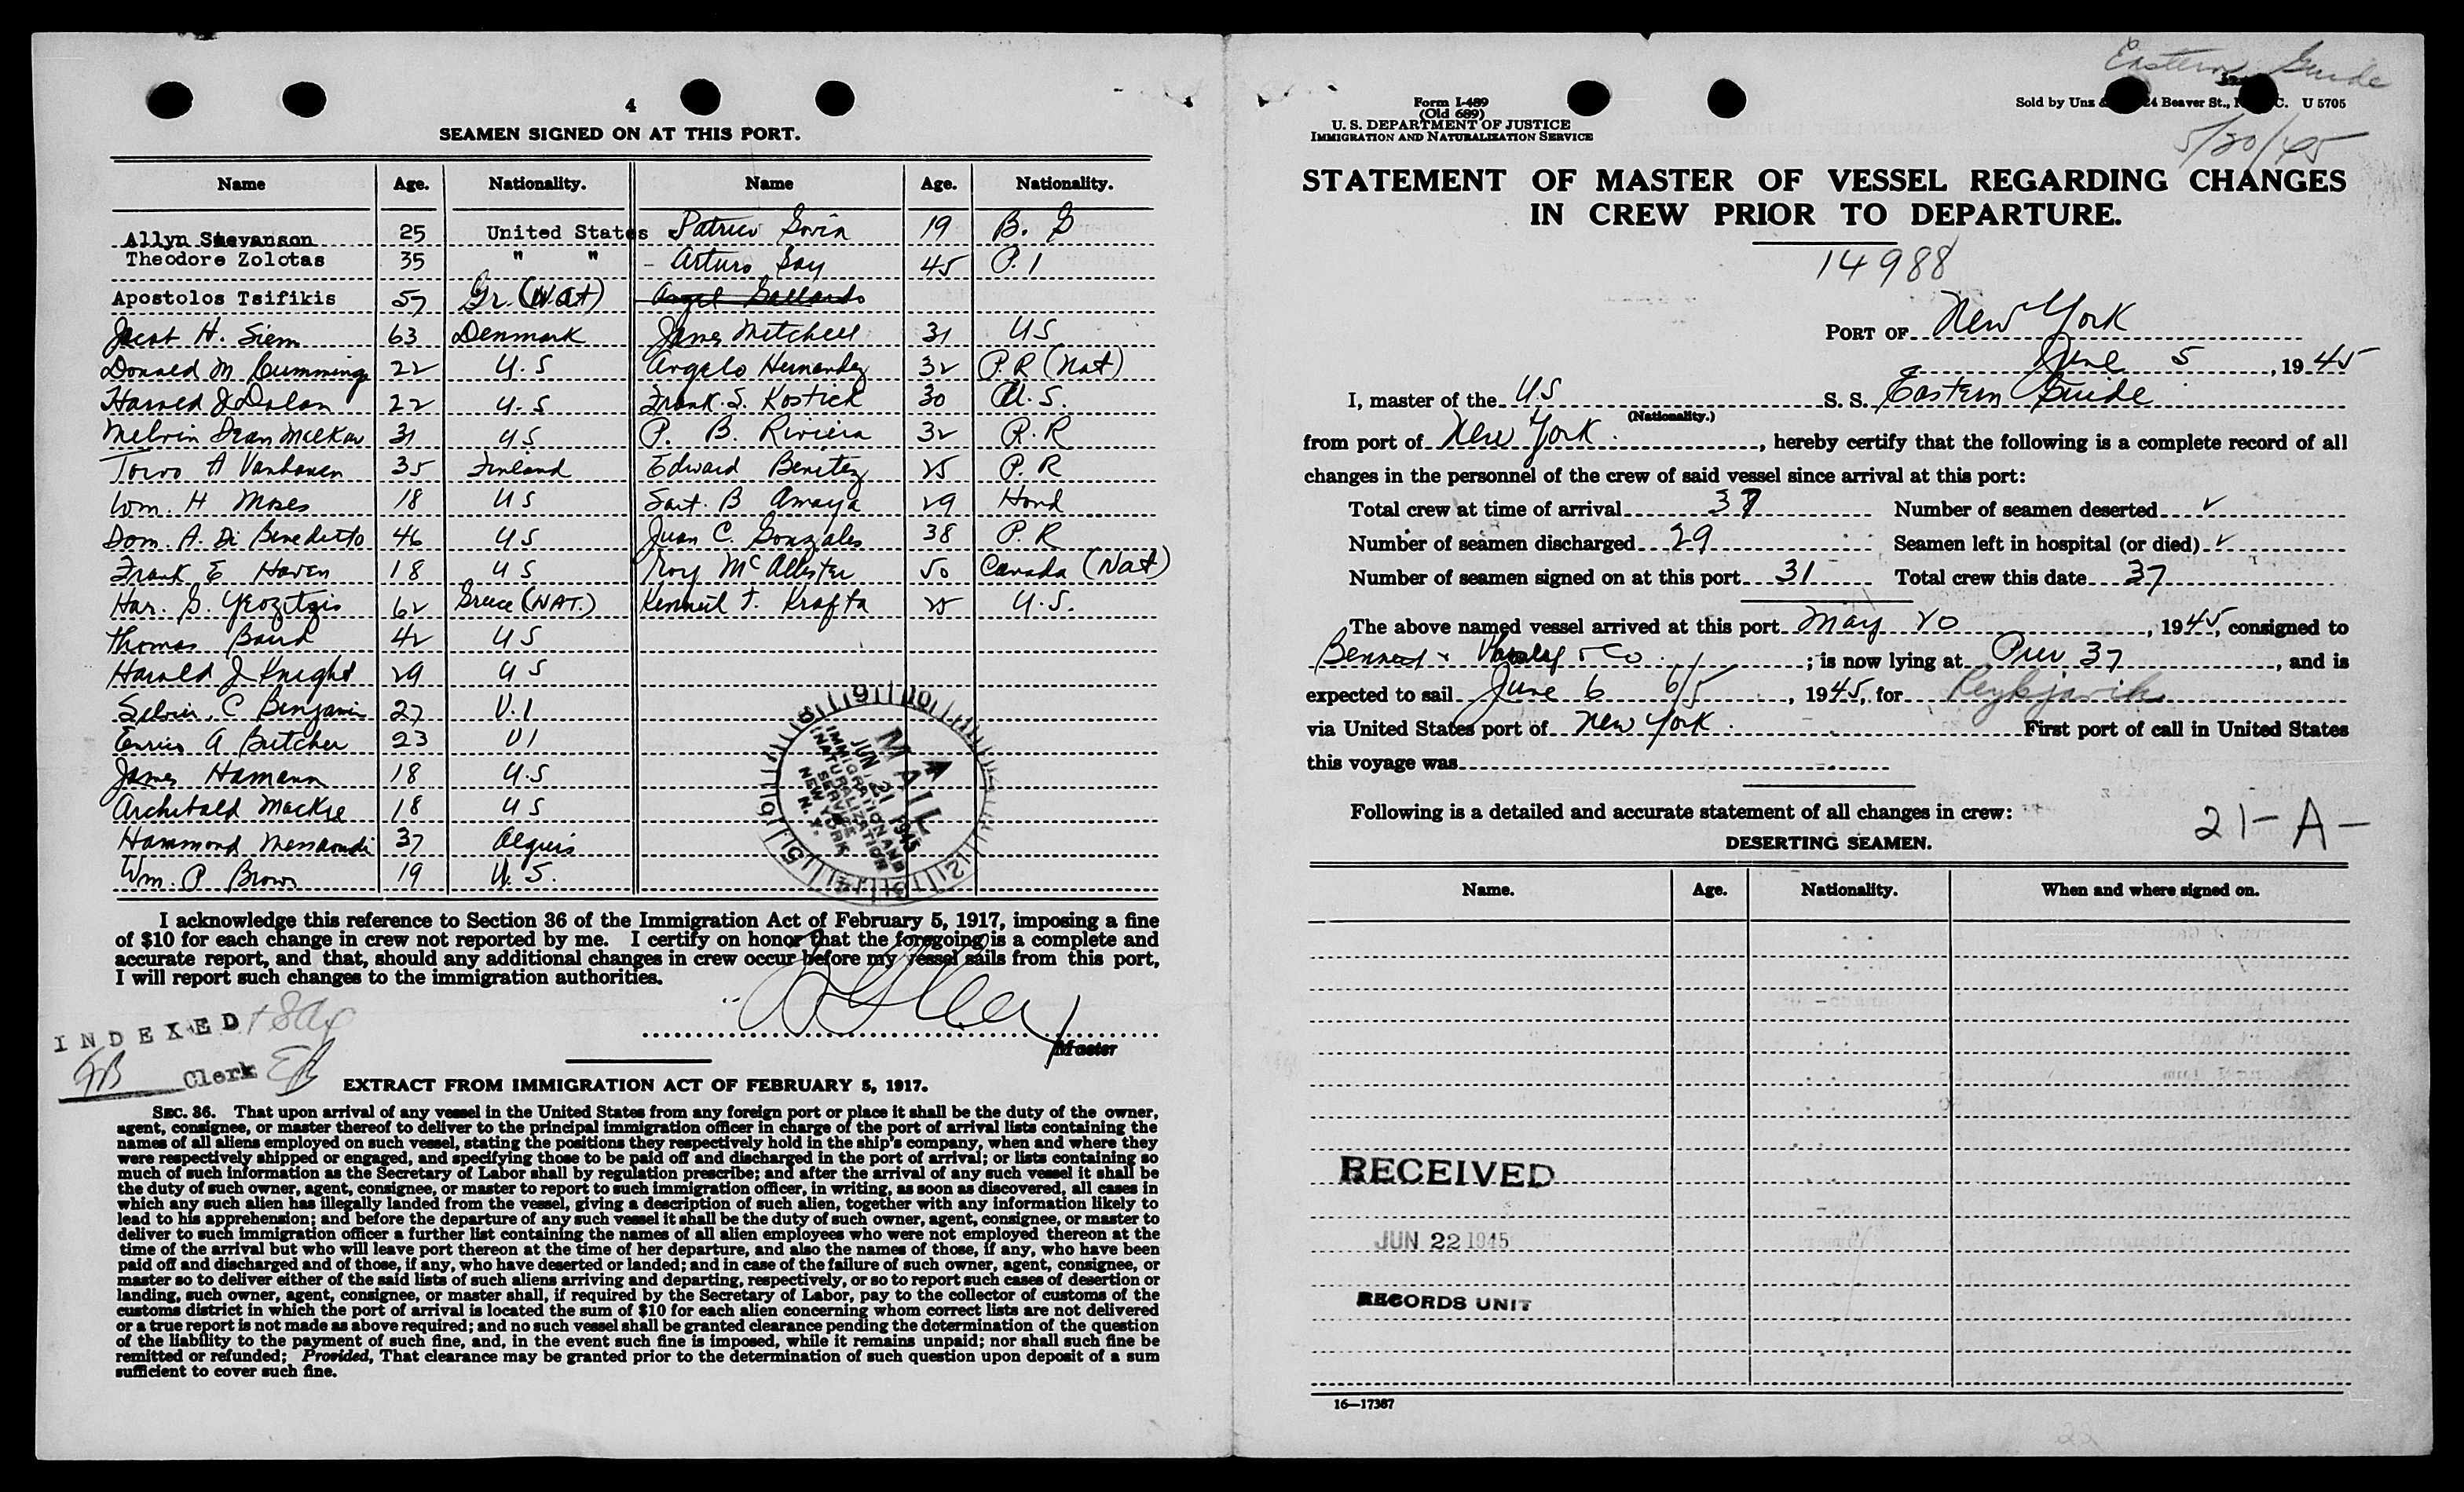 4
SEAMEN SIGNED ON AT THIS PORT.
Name Age. Nationality. Name Age. Nationality.
Allyn Stevanson 25 United States Patrico 19 B. G
Theodore Zolotas 35 " " - Arturo Say 45 P. I
Apostolos Tsifikis 57 Gr. (Nat) Angel Gallardo
Jacob H. Siem 63 Denmark James Mitchell 31 US
Donald M Cummings 22 U.S Angelo Hernandez 32 P.R (Nat)
Harold J Dolan 22 U.S Frank. S. Kostick 30 U.S.
Melvin Dean 31 US P. B. Riviera 32 P.R
Toivo A Vanhanen 35 Finland Edward Benitez 25 P.R
Wm. H Moses 18 US Sart. B Amaya 29 Hond
Dom. A. Di Benedetto 46 US Juan C. Gonzales 38 P.R
Frank E Haven 18 US Roy McAllister 50 Canada (Nat)
Har. G. 62 Greece (NAT.) Kenneth F. Krafta 25 U.S.
Thomas Baird 42 US
Harold J Knight 29 US
C Benjamin 27 V.I
A Butcher 23 VI
James Hamann 18 U.S
Archibald Mackie 18 US
Hammond Messaoudi 37
Wm. P Brown 19 U.S.
MAIL
JUN 21 1945
IMMIGRATION AND
NATURALIZATION
SERVICE
NEW YORK
N. Y.
I acknowledge this reference to Section 36 of the Immigration Act of February 5, 1917, imposing a fine
of $10 for each change in crew not reported by me. I certify on honor that the foregoing is a complete and
accurate report, and that, should any additional changes in crew occur before my vessel sails from this port,
I will report such changes to the immigration authorities.
Master
INDEXED
Clerk
EXTRACT FROM IMMIGRATION ACT OF FEBRUARY 5, 1917.
SEC. 36. That upon arrival of any vessel in the United States from any foreign port or place it shall be the duty of the owner,
agent, consignee, or master thereof to deliver to the principal immigration officer in charge of the port of arrival lists containing the
names of all aliens employed on such vessel, stating the positions they respectively hold in the ship's company, when and where they
were respectively shipped or engaged, and specifying those to be paid off and discharged in the port of arrival; or lists containing so
much of such information as the Secretary of Labor shall by regulation prescribe; and after the arrival of any such vessel it shall be
the duty of such owner, agent, consignee, or master to report to such immigration officer, in writing, as soon as discovered, all cases in
which any such alien has illegally landed from the vessel, giving a description of such alien, together with any information likely to
lead to his apprehension; and before the departure of any such vessel it shall be the duty of such owner, agent, consignee, or master to
deliver to such immigration officer a further list containing the names of all alien employees who were not employed thereon at the
time of the arrival but who will leave port thereon at the time of her departure, and also the names of those, if any, who have been
paid off and discharged and of those, if any, who have deserted or landed; and in case of the failure of such owner, agent, consignee, or
master so to deliver either of the said lists of such aliens arriving and departing, respectively, or so to report such cases of desertion or
landing, such owner, agent, consignee, or master shall, if required by the Secretary of Labor, pay to the collector of customs of the
customs district in which the port of arrival is located the sum of $10 for each alien concerning whom correct lists are not delivered
or a true report is not made as above required; and no such vessel shall be granted clearance pending the determination of the question
of the liability to the payment of such fine, and, in the event such fine is imposed, while it remains unpaid; nor shall such fine be
remitted or refunded; Provided, That clearance may be granted prior to the determination of such question upon deposit of a sum
sufficient to cover such fine.
Eastern Guide
Form I-489
(Old 689)
U. S. DEPARTMENT OF JUSTICE
IMMIGRATION AND NATURALIZATION SERVICE
Sold by Unz & 24 Beaver St., N. C. U 5705
5/20/45
STATEMENT OF MASTER OF VESSEL REGARDING CHANGES
IN CREW PRIOR TO DEPARTURE.
14988
PORT OF New York
June 5, 1945
I, master of the US S. S. Eastern Guide
(Nationality.)
from port of New York, hereby certify that the following is a complete record of all
changes in the personnel of the crew of said vessel since arrival at this port:
Total crew at time of arrival Number of seamen deserted ✓
Number of seamen discharged 29 Seamen left in hospital (or died) ✓
Number of seamen signed on at this port 31 Total crew this date 37
The above named vessel arrived at this port May 20, 1945, consigned to
& Co; is now lying at Pier 37, and is
expected to sail June 6 6/5, 1945, for Reykjavik
via United States port of New York. First port of call in United States
this voyage was
Following is a detailed and accurate statement of all changes in crew:
21-A-
DESERTING SEAMEN.
Name. Age. Nationality. When and where signed on.
RECEIVED
JUN 22 1945
RECORDS UNIT
16—17387